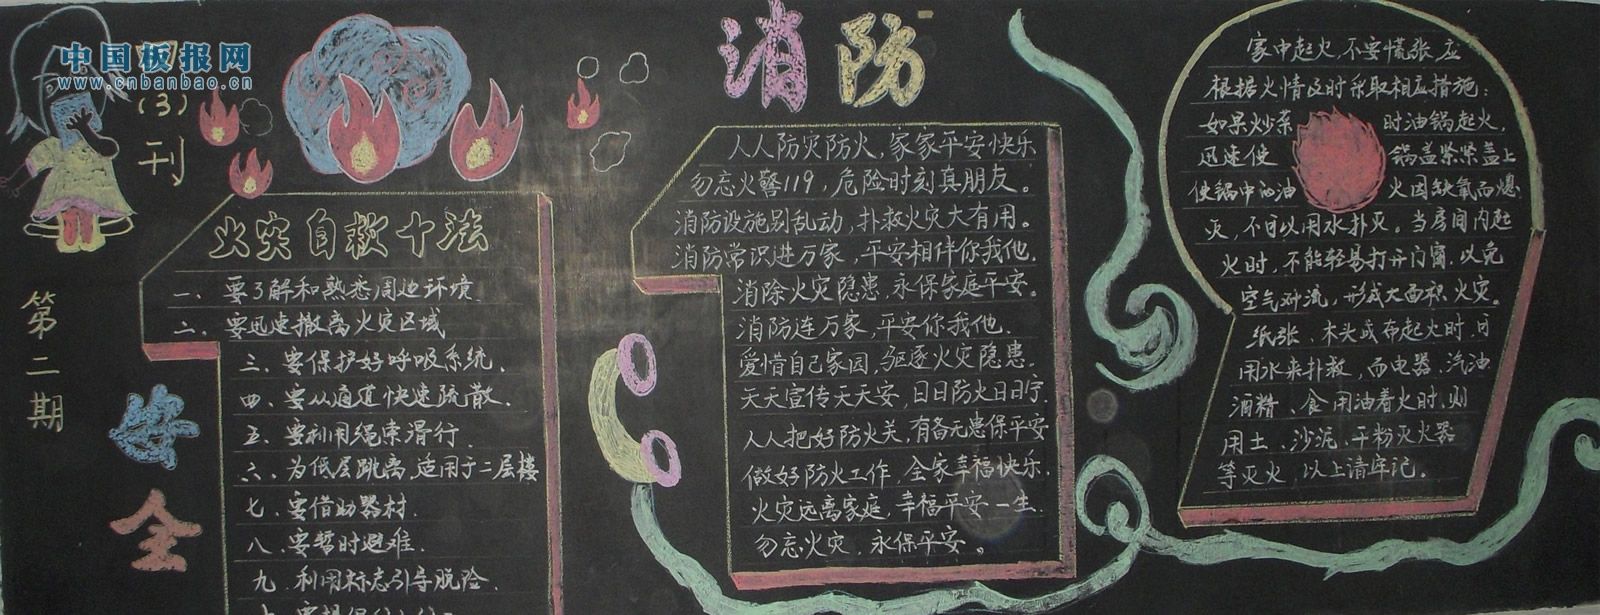 中国板报网
www.cnbanbao.cn
(3)
刊
第二期
安全
消防
火灾自救十法
一、要了解和熟悉周边环境.
二、要迅速撤离火灾区域
三、要保护好呼吸系统.
四、要从通道快速疏散.
五、要利用绳索滑行.
六、为低层跳离,适用于二层楼
七、要借助器材.
八、要暂时避难.
九 利用标志引导脱险.
人人防灾防火,家家平安快乐
勿忘火警119,危险时刻真朋友。
消防设施别乱动,扑救火灾大有用。
消防常识进万家,平安相伴你我他.
消除火灾隐患,永保家庭平安。
消防连万家,平安你我他.
爱惜自己家园,驱逐火灾隐患.
天天宣传天天安,日日防火日日宁.
人人把好防火关,有备无患保平安
做好防火工作,全家幸福快乐.
火灾远离家庭,幸福平安一生.
勿忘火灾,永保平安。
家中起火,不要慌张,应
根据火情及时采取相应措施:
如果炒菜 时油锅起火,
迅速使 锅盖紧紧盖上
使锅中的油 火因缺氧而熄
灭,不可以用水扑灭。当房间内起
火时,不能轻易打开门窗,以免
空气对流,形成大面积火灾。
纸张、木头或布起火时,可
用水来扑救,而电器、汽油
酒精、食用油着火时,则
用土、沙泥、干粉灭火器
等灭火,以上请牢记。